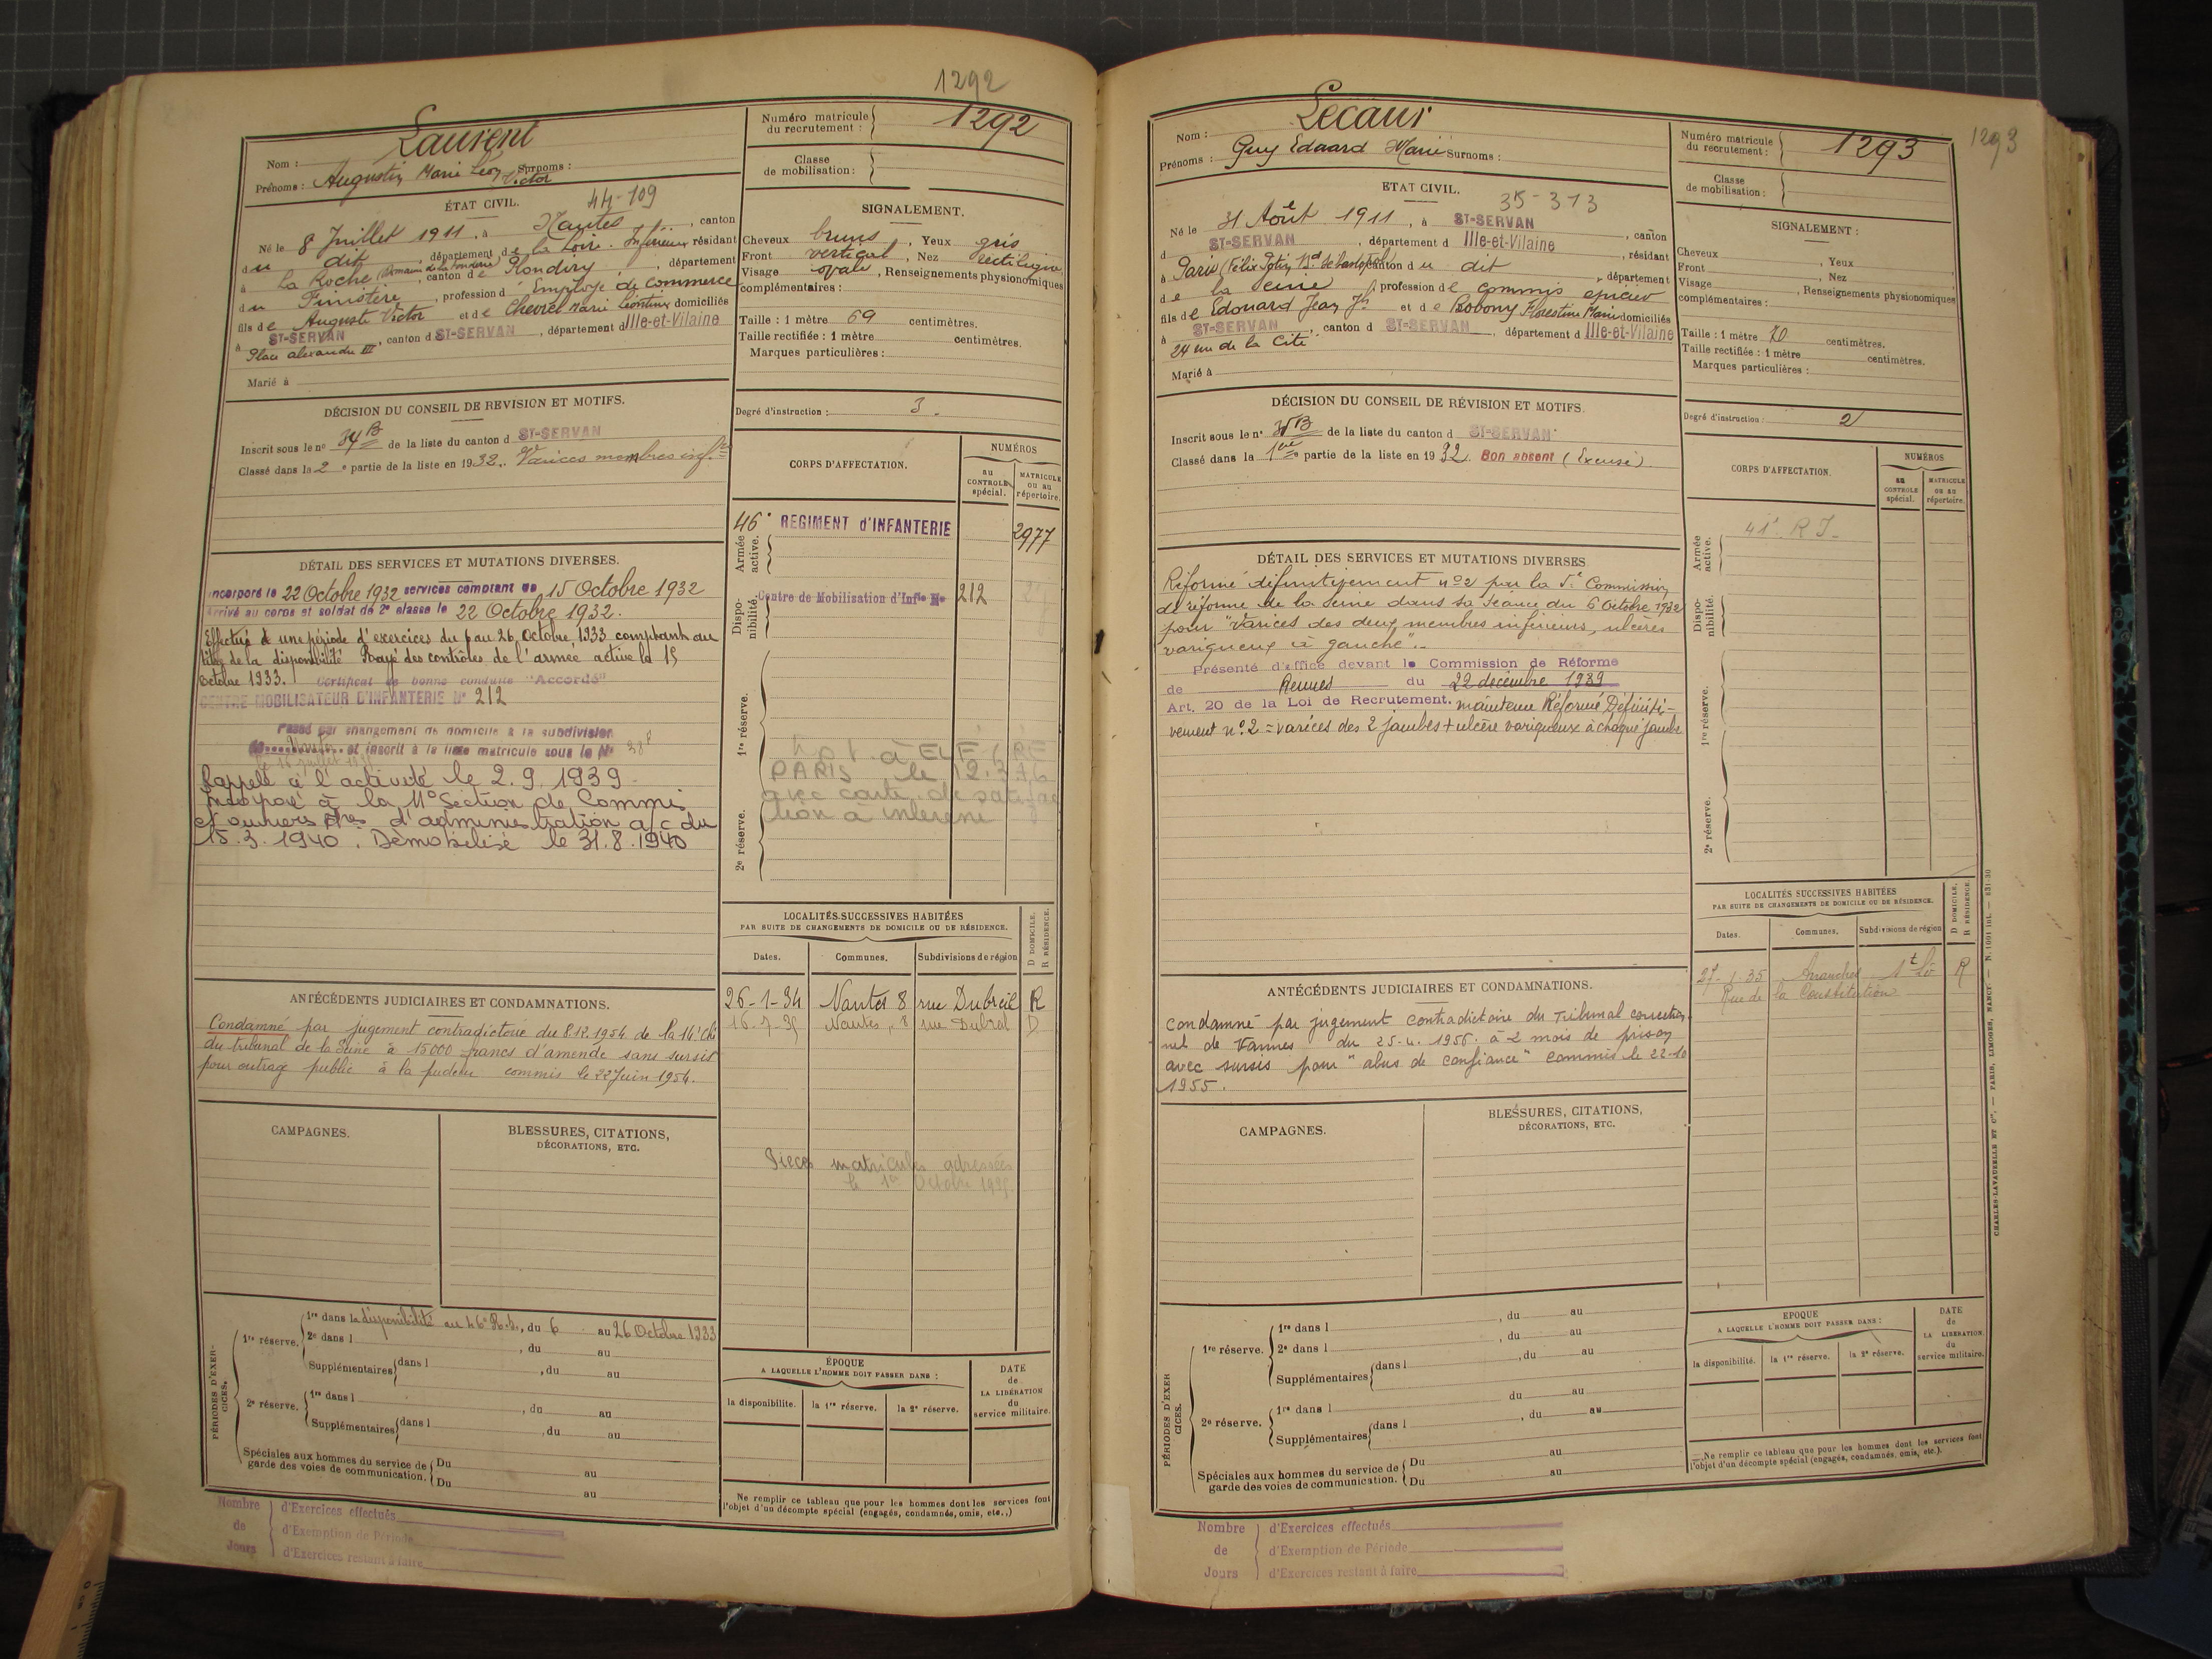 1292
Laurent
Nom :
Prénoms : Augustin Marie Léon Victor Surnoms :
Numéro matricule du recrutement : 1292
Classe de mobilisation :
ÉTAT CIVIL. 44-109
Né le 8 Juillet 1911, à Nantes, canton
du dit, département de la Loire-Inférieure résidant
à La Roche (Domaine de la Fonderie), canton de Plondiry, département
du Finistère, profession d'Employé de commerce
fils de Auguste Victor et de Chevrel Marie Léontine domiciliés
à ST-SERVAN, canton d ST-SERVAN, département d Ille-et-Vilaine
Place Alexandre III
Marié à
SIGNALEMENT.
Cheveux bruns, Yeux gris
Front vertical, Nez rectiligne
Visage ovale, Renseignements physionomiques
complémentaires :
Taille : 1 mètre 69 centimètres.
Taille rectifiée : 1 mètre centimètres.
Marques particulières :
Degré d'instruction : 3.
DÉCISION DU CONSEIL DE REVISION ET MOTIFS.
Inscrit sous le n° 34 B de la liste du canton d ST-SERVAN
Classé dans la 2e partie de la liste en 1932. Varices membres inf.
CORPS D'AFFECTATION.
NUMÉROS
au CONTROLE spécial.
MATRICULE ou au répertoire.
Armée active.
46e REGIMENT d'INFANTERIE 2977
Disponibilité.
Centre de Mobilisation d'Infie No 212
1re réserve.
PARIS le 12.3.76
avec carte de
2e réserve.
DÉTAIL DES SERVICES ET MUTATIONS DIVERSES.
Incorporé le 22 Octobre 1932 services comptant de 15 Octobre 1932
Arrivé au corps et soldat de 2e classe le 22 Octobre 1932.
Effectué une période d'exercices du 6 au 26 Octobre 1933 comptant au
titre de la disponibilité Rayé des contrôles de l'armée active le 15
Octobre 1933. Certificat de bonne conduite "Accordé"
CENTRE MOBILISATEUR D'INFANTERIE N° 212
Passé par changement de domicile à la subdivision
de Nantes et inscrit à la liste matricule sous le N°
Rappelé à l'activité le 2.9.1939
Incorporé à la 11e Section de Commis
et ouvriers d'administration a/c du
15.3.1940. Démobilisé le 31.8.1940
LOCALITÉS SUCCESSIVES HABITÉES
PAR SUITE DE CHANGEMENTS DE DOMICILE OU DE RÉSIDENCE.
D DOMICILE. R RÉSIDENCE.
Dates. Communes. Subdivisions de région
26-1-34 Nantes 8 rue Dubreil R
16-7-35 Nantes, 8 rue Dubreil D
Pieces matricules adressées
le 1er Octobre 1935.
ANTÉCÉDENTS JUDICIAIRES ET CONDAMNATIONS.
Condamné par jugement contradictoire du 8.12.1954 de la 14e ch
du tribunal de la Seine à 15000 francs d'amende sans sursis
pour outrage public à la pudeur commis le 22 Juin 1954.
CAMPAGNES.
BLESSURES, CITATIONS,
DÉCORATIONS, ETC.
PÉRIODES D'EXERCICES.
1re réserve.
1re dans la disponibilité au 46e R.I., du 6 au 26 Octobre 1933
2e dans l , du au
Supplémentaires dans l , du au
2e réserve.
1re dans l , du au
Supplémentaires dans l , du au
Spéciales aux hommes du service de garde des voies de communication.
Du au
Du au
ÉPOQUE
A LAQUELLE L'HOMME DOIT PASSER DANS :
la disponibilité. la 1re réserve. la 2e réserve.
DATE de LA LIBÉRATION du service militaire.
Ne remplir ce tableau que pour les hommes dont les services font
l'objet d'un décompte spécial (engagés, condamnés, omis, etc..)
Nombre de Jours
d'Exercices effectués
d'Exemption de Période
d'Exercices restant à faire
Lecaur
Nom :
Prénoms : Guy Edouard Marie Surnoms :
Numéro matricule du recrutement : 1293
1293
Classe de mobilisation :
ETAT CIVIL. 35-313
Né le 31 Août 1911, à ST-SERVAN
d ST-SERVAN, département d Ille-et-Vilaine, canton
à Paris (Félix Potin, Bd Sébastopol) canton du dit, résidant
de la Seine, profession de commis épicier, département
fils de Edouard Jean Jh et de Robony Florestine Marie domiciliés
à ST-SERVAN, canton d ST-SERVAN, département d Ille-et-Vilaine
24 rue de la Cité
Marié à
SIGNALEMENT :
Cheveux , Yeux
Front , Nez
Visage , Renseignements physionomiques
complémentaires :
Taille : 1 mètre 70 centimètres.
Taille rectifiée : 1 mètre centimètres.
Marques particulières :
Degré d'instruction : 2
DÉCISION DU CONSEIL DE RÉVISION ET MOTIFS.
Inscrit sous le n° 35 B de la liste du canton d ST-SERVAN
Classé dans la 1ère partie de la liste en 1932. Bon absent (Excusé)
CORPS D'AFFECTATION.
NUMÉROS
au CONTROLE spécial.
MATRICULE ou au répertoire.
Armée active.
41e R I
Disponibilité.
1re réserve.
2e réserve.
DÉTAIL DES SERVICES ET MUTATIONS DIVERSES
Réformé définitivement n°2 par la 5e Commission
de réforme de la Seine dans sa séance du 6 Octobre 1932
pour "varices des deux membres inférieurs, ulcères
variqueux à gauche".
Présenté d'office devant la Commission de Réforme
de Rennes du 22 décembre 1939
Art. 20 de la Loi de Recrutement. maintenu Réformé Définiti-
vement n°2 = varices des 2 jambes + ulcère variqueux à chaque jambe
LOCALITÉS SUCCESSIVES HABITÉES
PAR SUITE DE CHANGEMENTS DE DOMICILE OU DE RÉSIDENCE.
D DOMICILE. R RÉSIDENCE.
Dates. Communes. Subdivisions de région
27-1-35 Avranches St Lô R
Rue de la Constitution
ANTÉCÉDENTS JUDICIAIRES ET CONDAMNATIONS.
condamné par jugement contradictoire du Tribunal correction-
nel de Vannes du 25.4.1956. à 2 mois de prison
avec sursis pour "abus de confiance" commis le 22-10
1955.
CAMPAGNES.
BLESSURES, CITATIONS,
DÉCORATIONS, ETC.
PÉRIODES D'EXERCICES.
1re réserve.
1re dans l , du au
2e dans l , du au
Supplémentaires dans l , du au
2e réserve.
1re dans l du au
Supplémentaires dans l , du au
Spéciales aux hommes du service de garde des voies de communication.
Du au
Du au
EPOQUE
A LAQUELLE L'HOMME DOIT PASSER DANS :
la disponibilité. la 1re réserve. la 2e réserve.
DATE de LA LIBERATION du service militaire.
Ne remplir ce tableau que pour les hommes dont les services font
l'objet d'un décompte spécial (engagés, condamnés, omis, etc.).
CHARLES-LAVAUZELLE ET Cie. — PARIS, LIMOGES, NANCY
Nombre de Jours
d'Exercices effectués
d'Exemption de Période
d'Exercices restant à faire